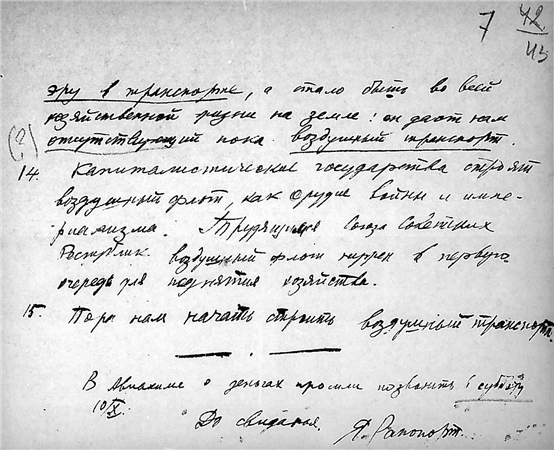 7 42/43
эру в транспорте, а стало быть во всей
хозяйственной жизни на земле: он даст нам
(2) отсутствующий пока воздушный транспорт.
14. Капиталистические государства строят
воздушный флот, как орудие войны и импе-
риализма. Трудящимся Союза Советских
Республик воздушный флот нужен в первую
очередь для поднятия хозяйства.
15. Пора нам начать строить воздушный транспорт.
В Авиахиме о деньгах просили позвонить в субботу
10/X.
До свидания. Я. Рапопорт.